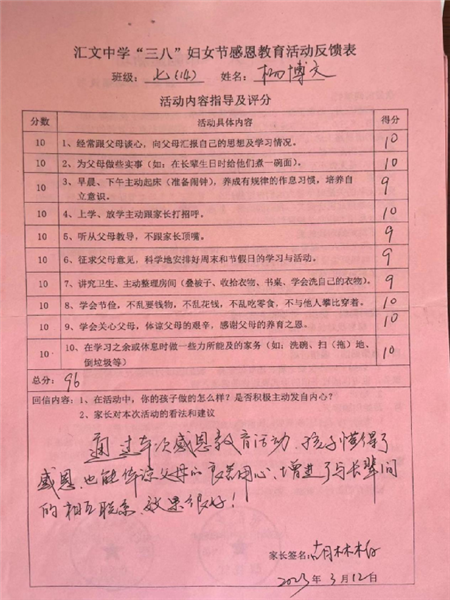 汇文中学“三八”妇女节感恩教育活动反馈表
班级：七(14) 姓名：杨博文
活动内容指导及评分
分数 活动具体内容 得分
10 1、经常跟父母谈心，向父母汇报自己的思想及学习情况。 10
10 2、为父母做些实事（如：在长辈生日时给他们煮一碗面）。 10
10 3、早晨、下午主动起床（准备闹钟），养成有规律的作息习惯，培养自 9
立意识。
10 4、上学、放学主动跟家长打招呼。 10
10 5、听从父母教导，不跟家长顶嘴。 9
10 6、征求父母意见，科学地安排好周末和节假日的学习与活动。 9
10 7、讲究卫生、主动整理房间（叠被子、收拾衣物、书桌、学会洗自己的衣物）。 9
10 8、学会节俭，不乱要钱物，不乱花钱，不乱吃零食，不与他人攀比穿着。 10
10 9、学会关心父母，体谅父母的艰辛，感谢父母的养育之恩。 10
10 10、在学习之余或休息时做一些力所能及的家务（如：洗碗、扫（拖）地、 10
倒垃圾等）
总分：96
回信内容：1、在活动中，你的孩子做的怎么样？是否积极主动发自内心？
2、家长对本次活动的看法和建议
通过本次感恩教育活动，孩子懂得了
感恩，也能体谅父母的良苦用心，增进了与长辈间
的相互联系，效果很好！
家长签名：
2023年3月12日